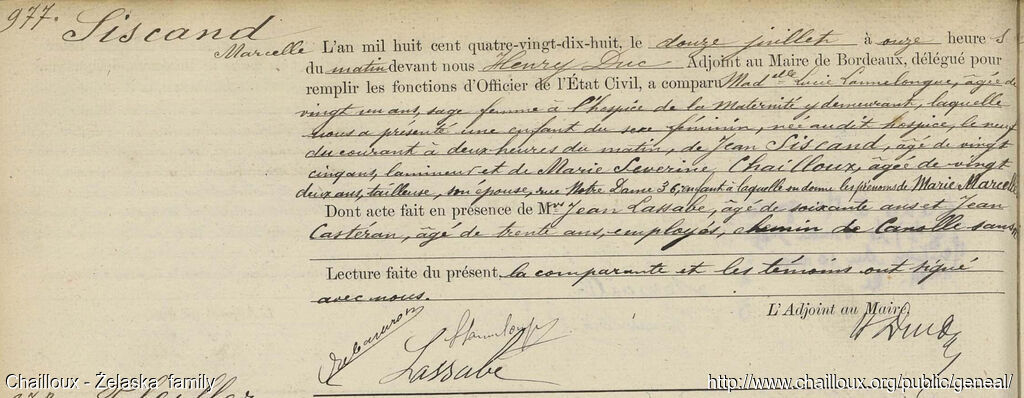 977. Siscand
Marcelle
L'an mil huit cent quatre-vingt-dix-huit, le douze juillet à onze heures
du matin devant nous Henry Duc Adjoint au Maire de Bordeaux, délégué pour
remplir les fonctions d'Officier de l'État Civil, a comparu Mad elle Lucie Lannelongue, âgée de
vingt un ans, sage femme à l'hospice de la Maternité y demeurant, laquelle
nous a présenté une enfant du sexe féminin, née audit hospice, le neuf
du courant à deux heures du matin, de Jean Siscand, âgé de vingt
cinq ans, lamineur et de Marie Severine Chailloux, âgée de vingt
deux ans, tailleuse, son épouse, rue Notre Dame 36, enfant à laquelle on donne les prénoms de Marie Marcelle
Dont acte fait en présence de Mrs Jean Lassabe, âgé de soixante ans et Jean
Castéran, âgé de trente ans, employés, chemin de Canolle sans n°
Lecture faite du présent, la comparante et les témoins ont signé
avec nous.
L'Adjoint au Maire,
Lassabe
H Duc
Chailloux - Želaska family
http://www.chailloux.org/public/geneal/